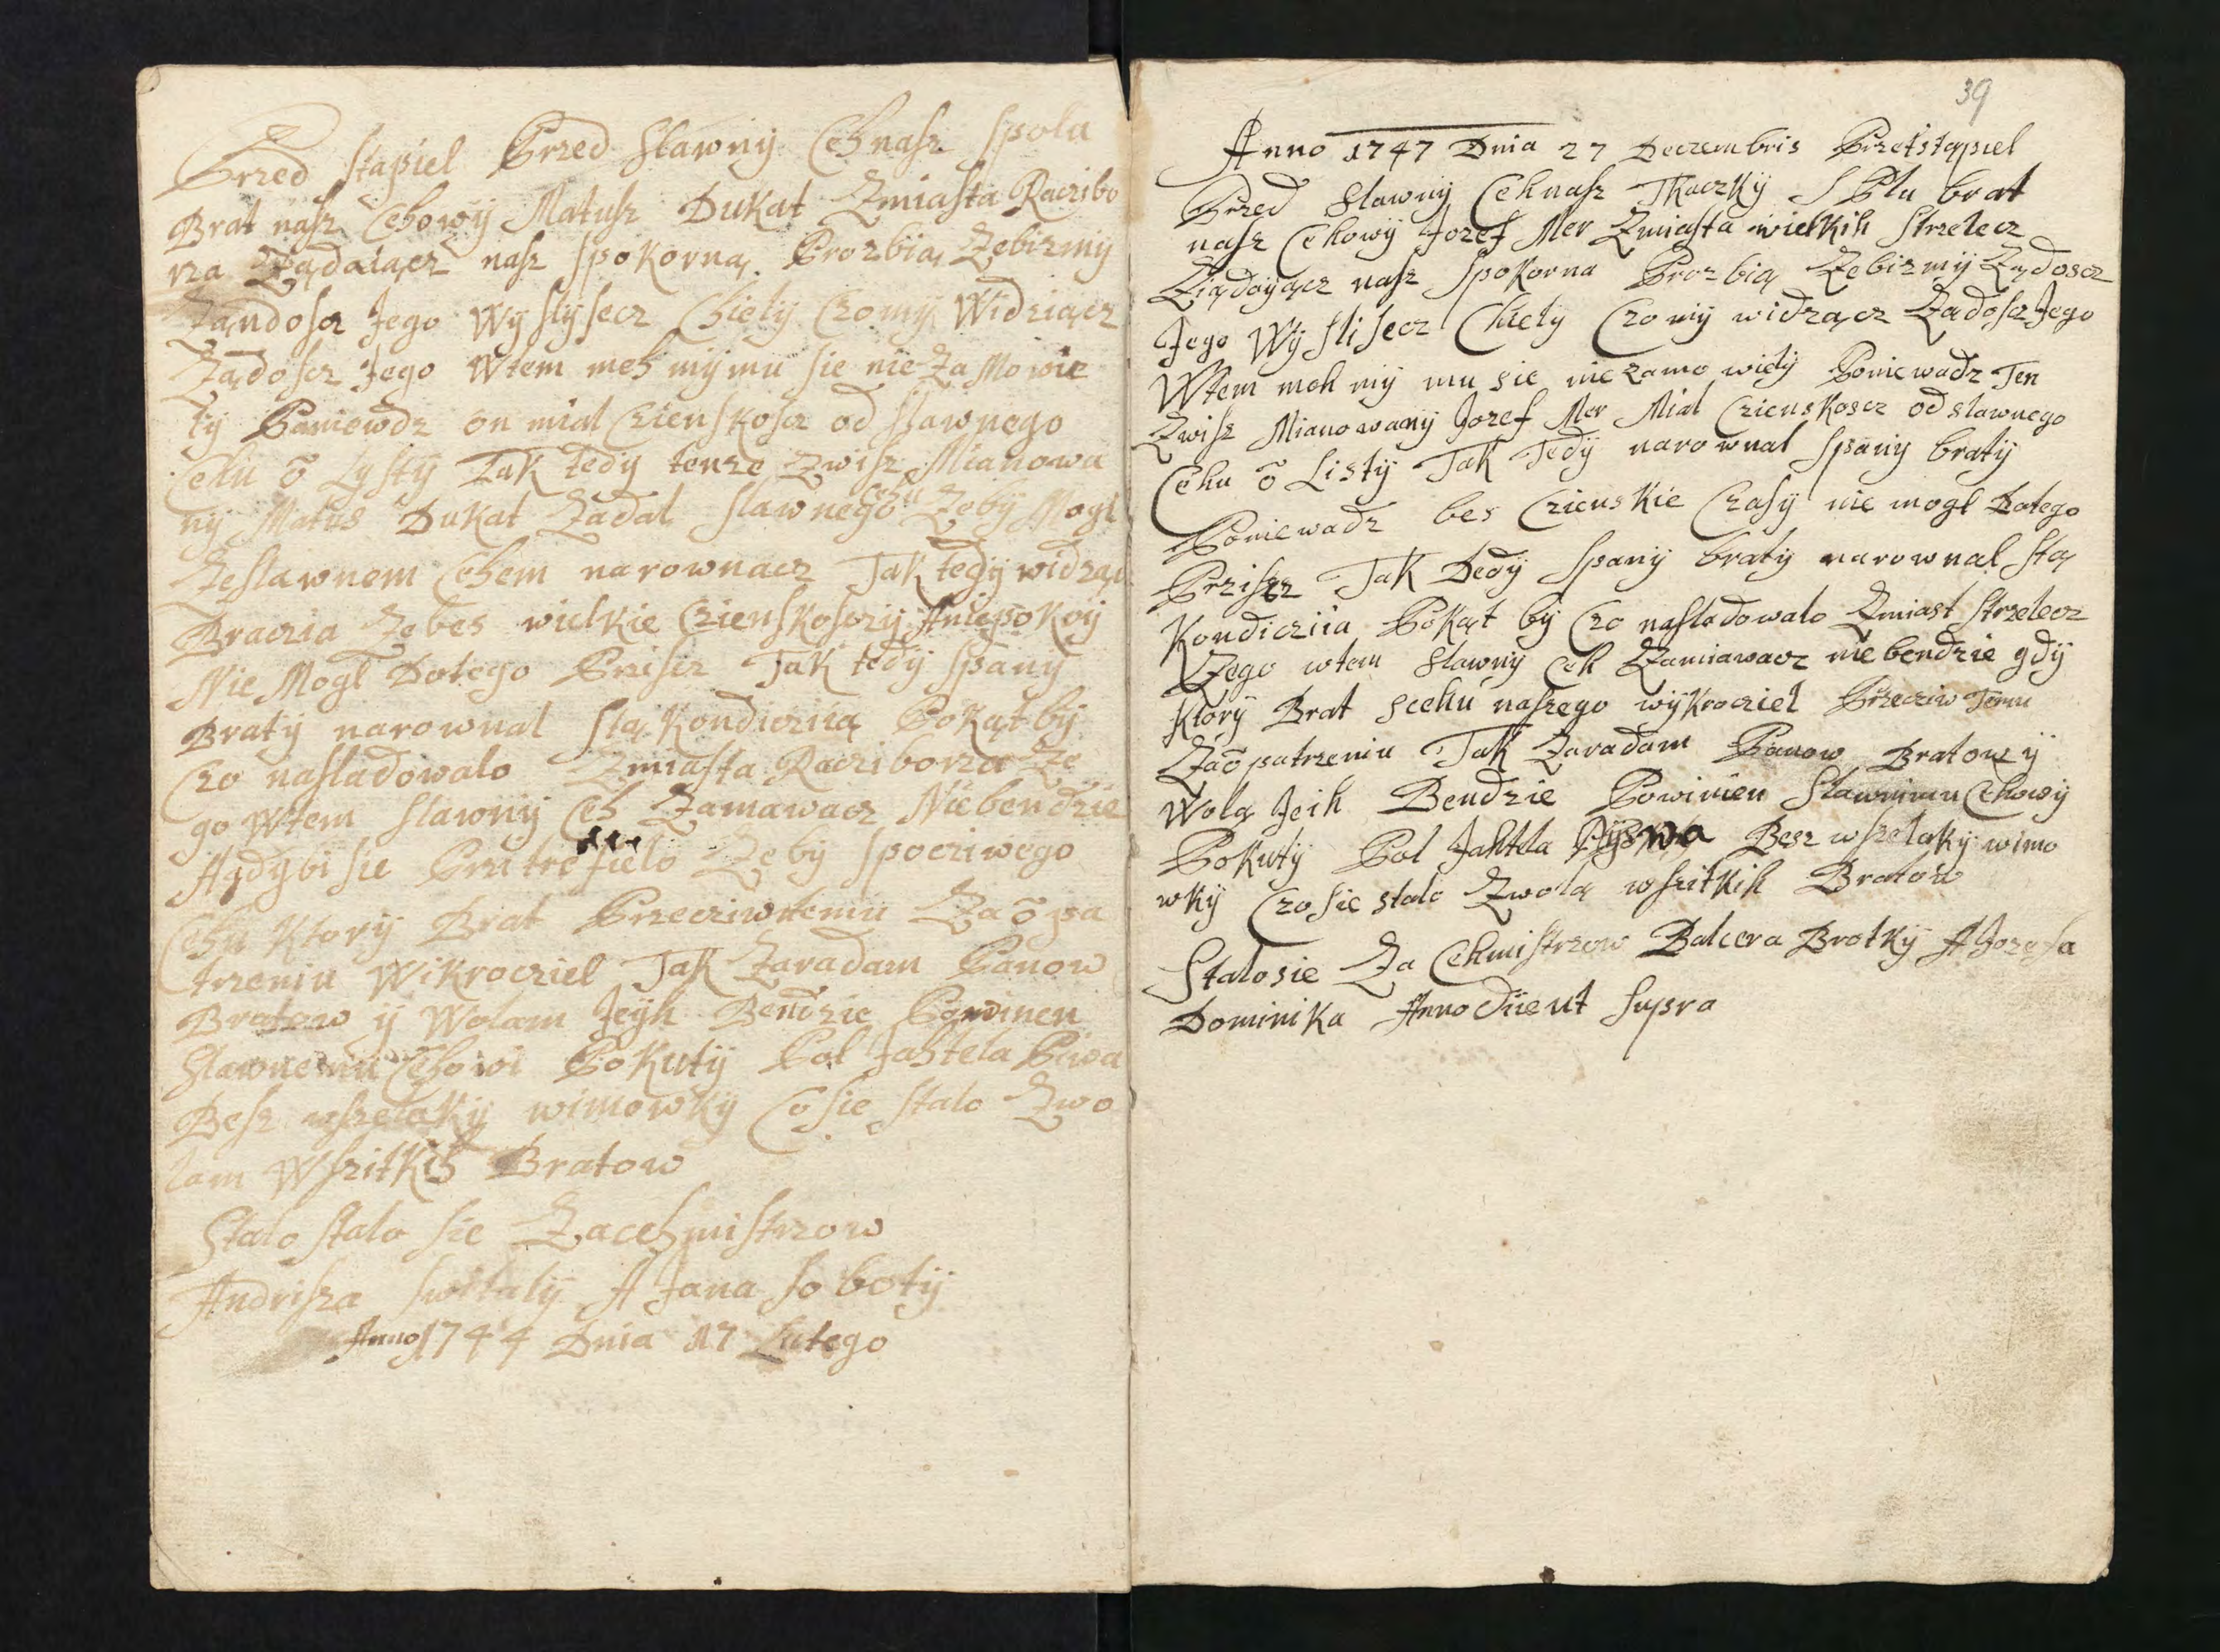 Przed stapiel Przed slawny Ceh nasz spolu
Brat nasz Cehowÿ Matusz Dukat Zmiasta Racibo
rza Żądaiącz nasz spokorną Prozbią Zebizmÿ
Żandoscz Jego Wÿslÿsecz Chiely Czo mÿ Widziącz
Żądoscz Jego Wtem meh mÿ mu sie nie Zamowie
lÿ Paniewdz on mial Czienskoscz od slawnego
Cehu õ Lystÿ Tak tedÿ tenze Zwisz Mianowa
nÿ Matus Dukat Żadal slawnego Cehu Zebÿ Mogl
Zeslawnem Cehem narownacz Tak tedÿ widząc
Braczia Ze bes wielkie Czienskosczÿ Aniepokoÿ
Nie Mogl Dotego Prisez Tak tedÿ spanÿ
Bratÿ narownal stą Kondiczitą Pokąt bÿ
Czo nasladowalo Zmiasta Racziborza Ze
go Wtem slawnÿ Ceh Zamawacz Niebendzie
Agdÿbi sie Pritrefielo Zebÿ spocziwego
Cehu Ktorÿ Brat Przecziwtemu Zaõpa
trzeniu Wikrocziel Tak Zaradam Panow
Bratow ÿ Wolam Jeÿh Bendzie Powinen
Slawnemu Cehowi Pokutÿ Pol Jahtela Piwa
Besz wszelakÿ wimowkÿ Co sie stalo Zwo
lam Wszitkih Bratow
Stalo stalo sie Zacehmistrzow
Andrisza switalÿ A Jana sobotÿ
Anno 1744 Dnia 17 Lutego
39
Anno 1747 Dnia 27 Deczembris Przetstąpiel
Przed Slawnÿ Ceh nasz Tkaczkÿ S Plu brat
nasz Cehowÿ Jozef Mer Zmiasta wielkih Strzelecz
Ziądaÿącz nasz spokorna Prozbią Zebizmÿ Żądoscz
Jego Wÿslisecz Chiely Czo mÿ widzącz Żadoscz Jego
Wtem meh mÿ mu sie nie zamowielÿ Poniewadz Ten
Zwisz Mianowanÿ Jozef Mer Mial Czienskoscz od slawnego
Cehu õ Listÿ Tak Tedÿ narownal spanÿ bratÿ
Poniewadz bes Czienskie Czasÿ nie mogl Dotego
Priszcz Tak Dedÿ spanÿ bratÿ narownal stą
Kondicziia Pokąt bÿ Czo nasladowalo Zmiast Strzelecz
Zego wtem Slawnÿ Ceh Zamiawacz nie bendzie gdÿ
Ktorÿ Brat scehu naszego wÿkrocziel Przecziw Temu
Zaõpatrzeniu Tak Zaradam Panow Bratow ÿ
Wolą Jeih Bendzie Powinien Slawnimu Cehowÿ
Pokutÿ Pol Jahtela Pÿwa Besz wszelakÿ wimo
wkÿ Czo sie stalo Zwolą wszitkih Bratow
Stalo sie Za Cehmistrzow Balcera Brotkÿ A Jozefa
Dominika Anno Die ut Supra